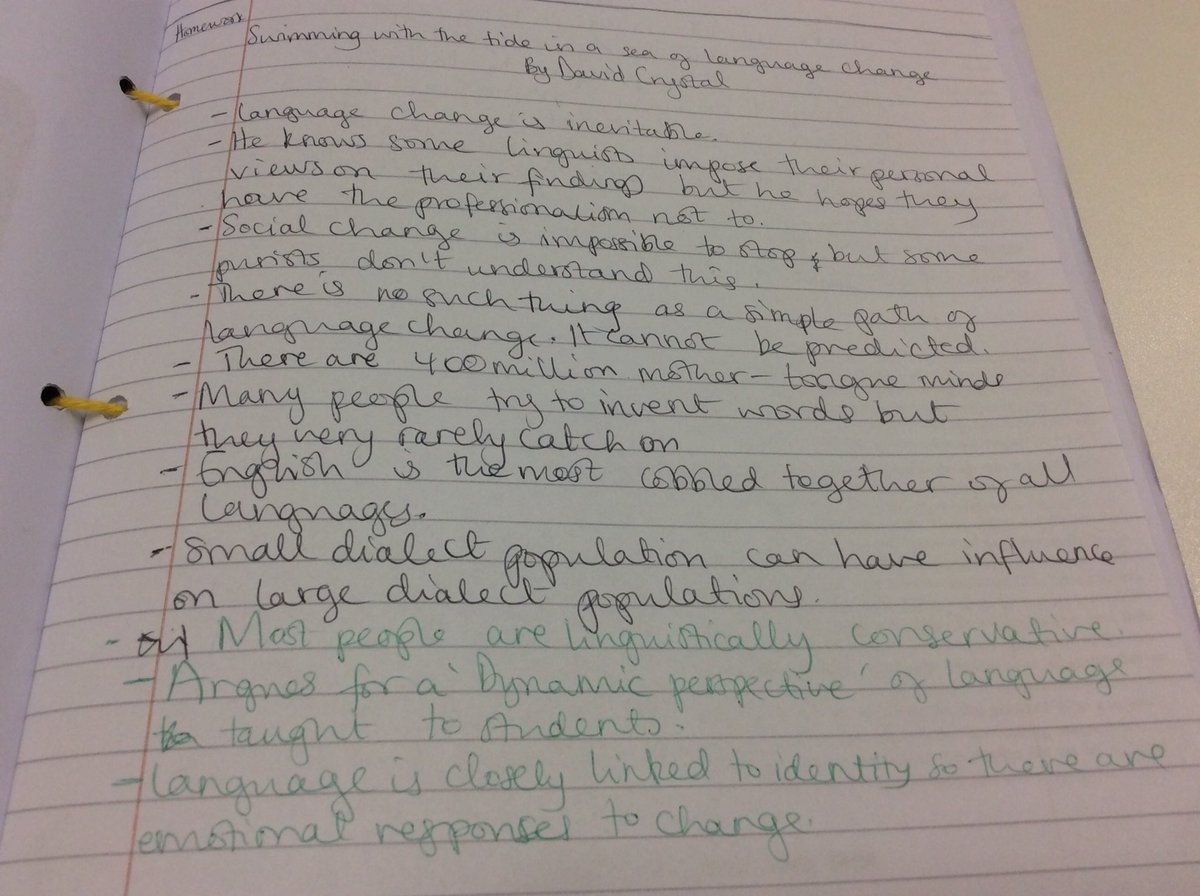 Homework
Swimming with the tide in a sea of language change
By David Crystal
- Language change is inevitable.
- He knows some linguists impose their personal
views on their findings but he hopes they
have the professionalism not to.
- Social change is impossible to stop, but some
purists don't understand this.
- There is no such thing as a simple path of
language change. It cannot be predicted.
- There are 400 million mother-tongue minds
- Many people try to invent words but
they very rarely catch on
- English is the most cobbled together of all
languages.
- Small dialect population can have influence
on large dialect populations.
- Most people are linguistically conservative.
- Argues for a 'Dynamic perspective' of language
taught to students.
- Language is closely linked to identity so there are
emotional responses to change.